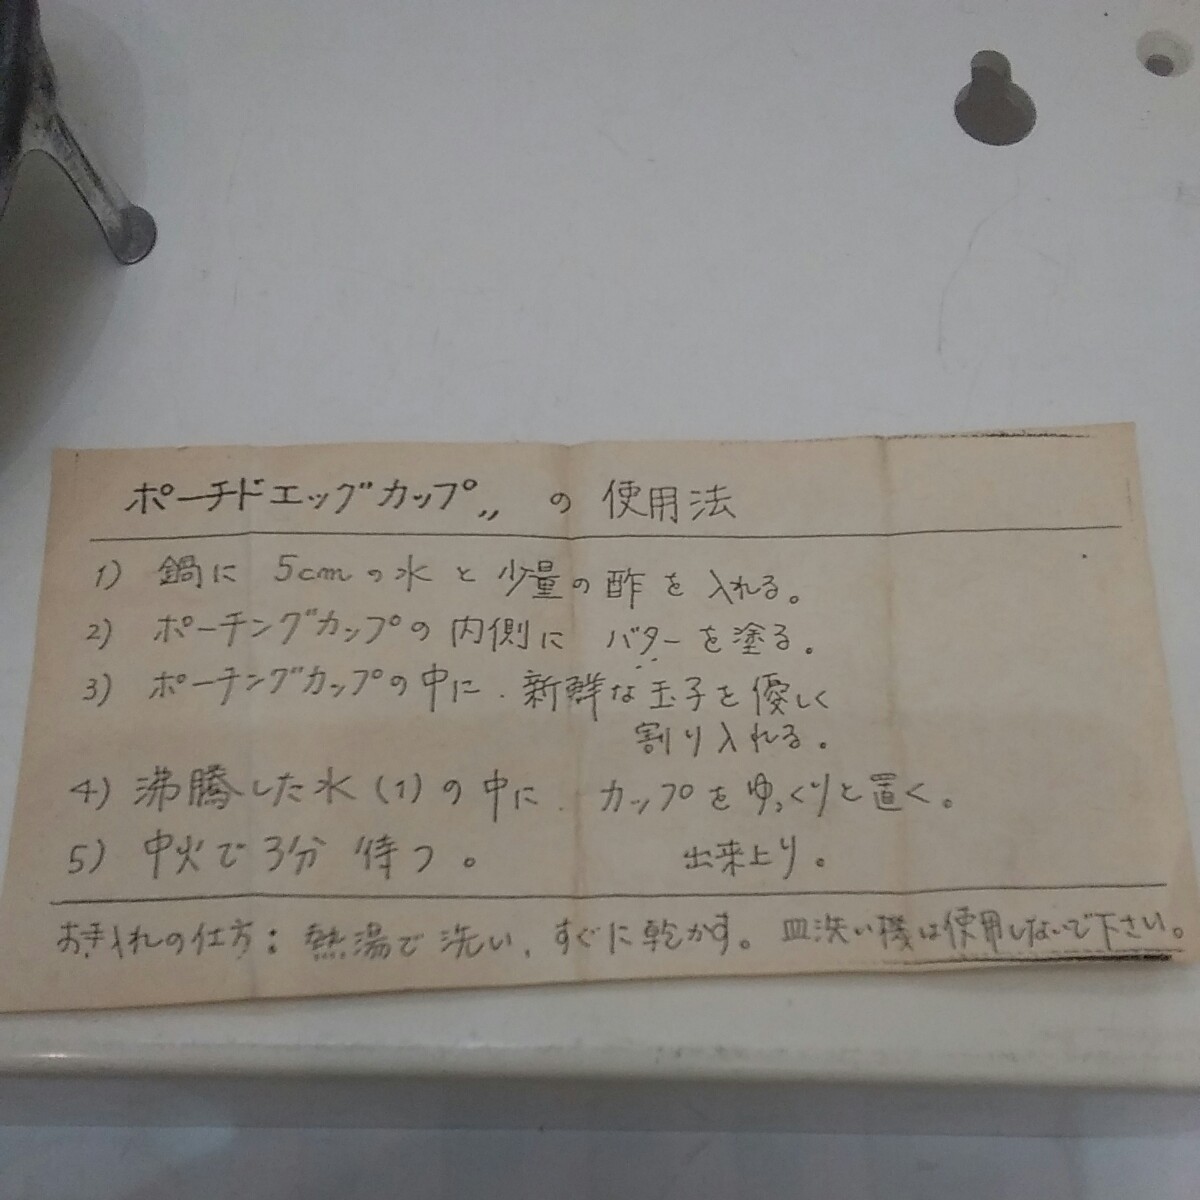 ポーチドエッグカップ〟 の 使用法
1) 鍋に 5cmの水 と 少量の酢を入れる。
2) ポーチングカップの内側に バターを塗る。
3) ポーチングカップの中に、新鮮な玉子を優しく
割り入れる。
4) 沸騰した水(1)の中に、カップをゆっくりと置く。
5) 中火で3分 待つ。 出来上り。
お手入れの仕方: 熱湯で洗い、すぐに乾かす。皿洗い機は使用しないで下さい。